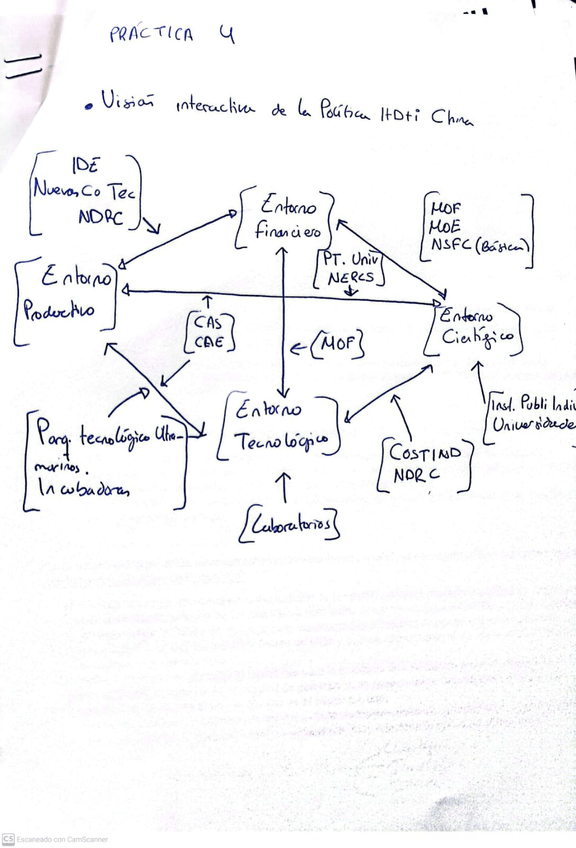 PRÁCTICA 4
• Visión interactiva de la Política I+D+i China
IDE
Nuevas Co Tec
NDRC
Entorno
Financiero
MOF
MOE
NSFC (Básica)
PT. Univ
NERCS
Entorno
Productivo
CAS
CAE
(MOF)
Entorno
Científico
Parq. tecnológico Ultra-
marinos.
Incubadoras
Entorno
Tecnológico
Inst. Publi Indiv
Universidade
COSTIND
NDRC
[Laboratorios]
CS Escaneado con CamScanner